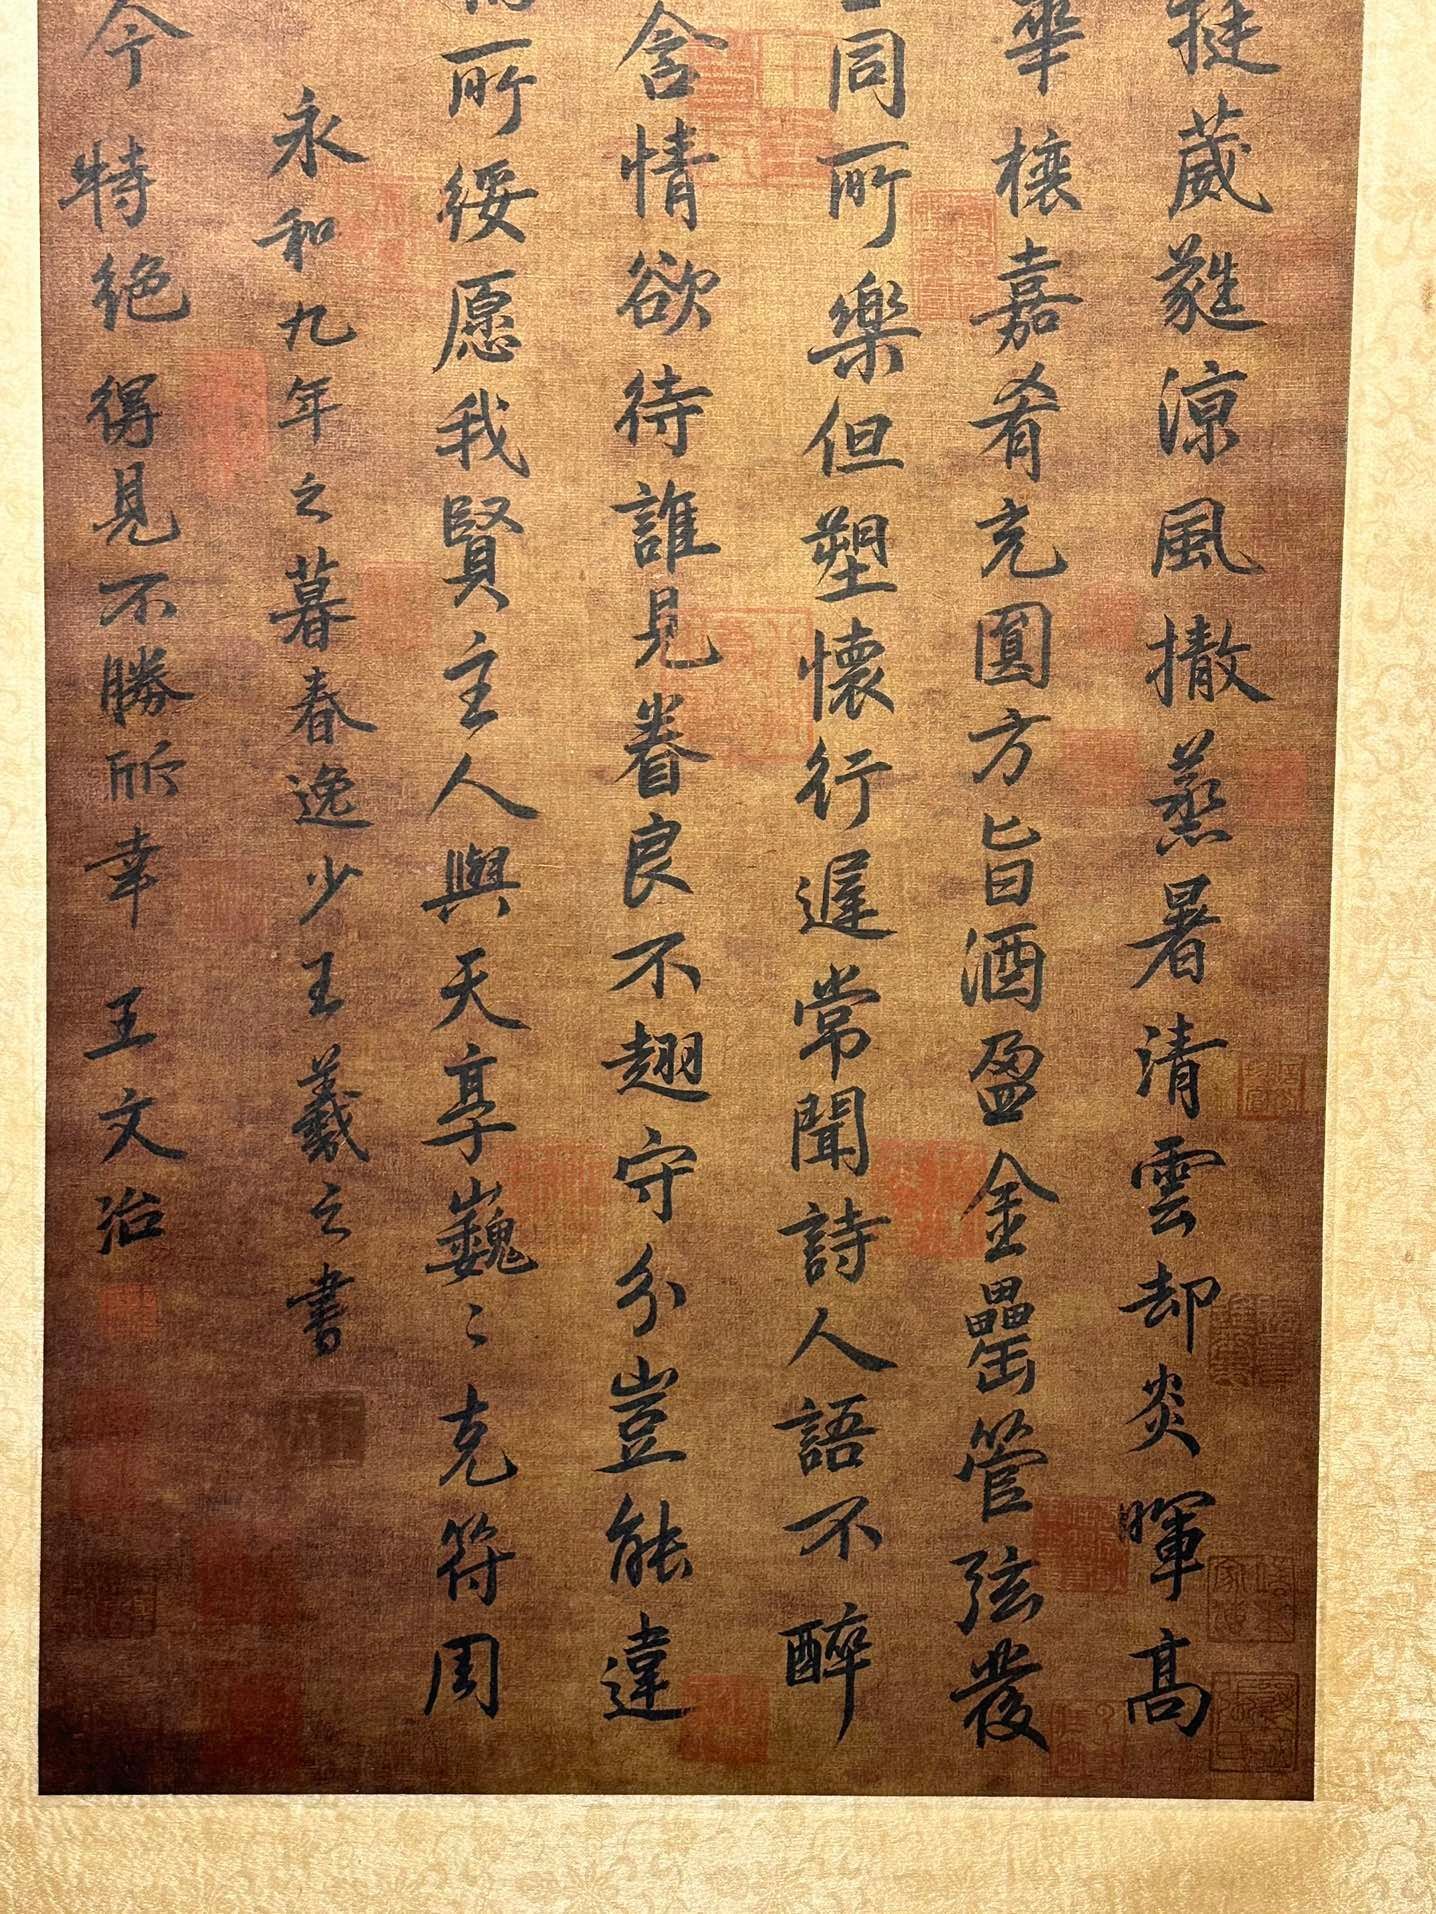 挺葳蕤涼風撤蒸暑清雲却炎暉高
華榱嘉肴充圓方旨酒盈金罍管弦發
同所可樂但愬懷行遲常聞詩人語不醉
含情欲待誰見眷良不翅守分豈能違
所綏愿我賢主人與天享巍〻克符周
永和九年之暮春逸少王羲之書
今特絕得見不勝所幸 王文治